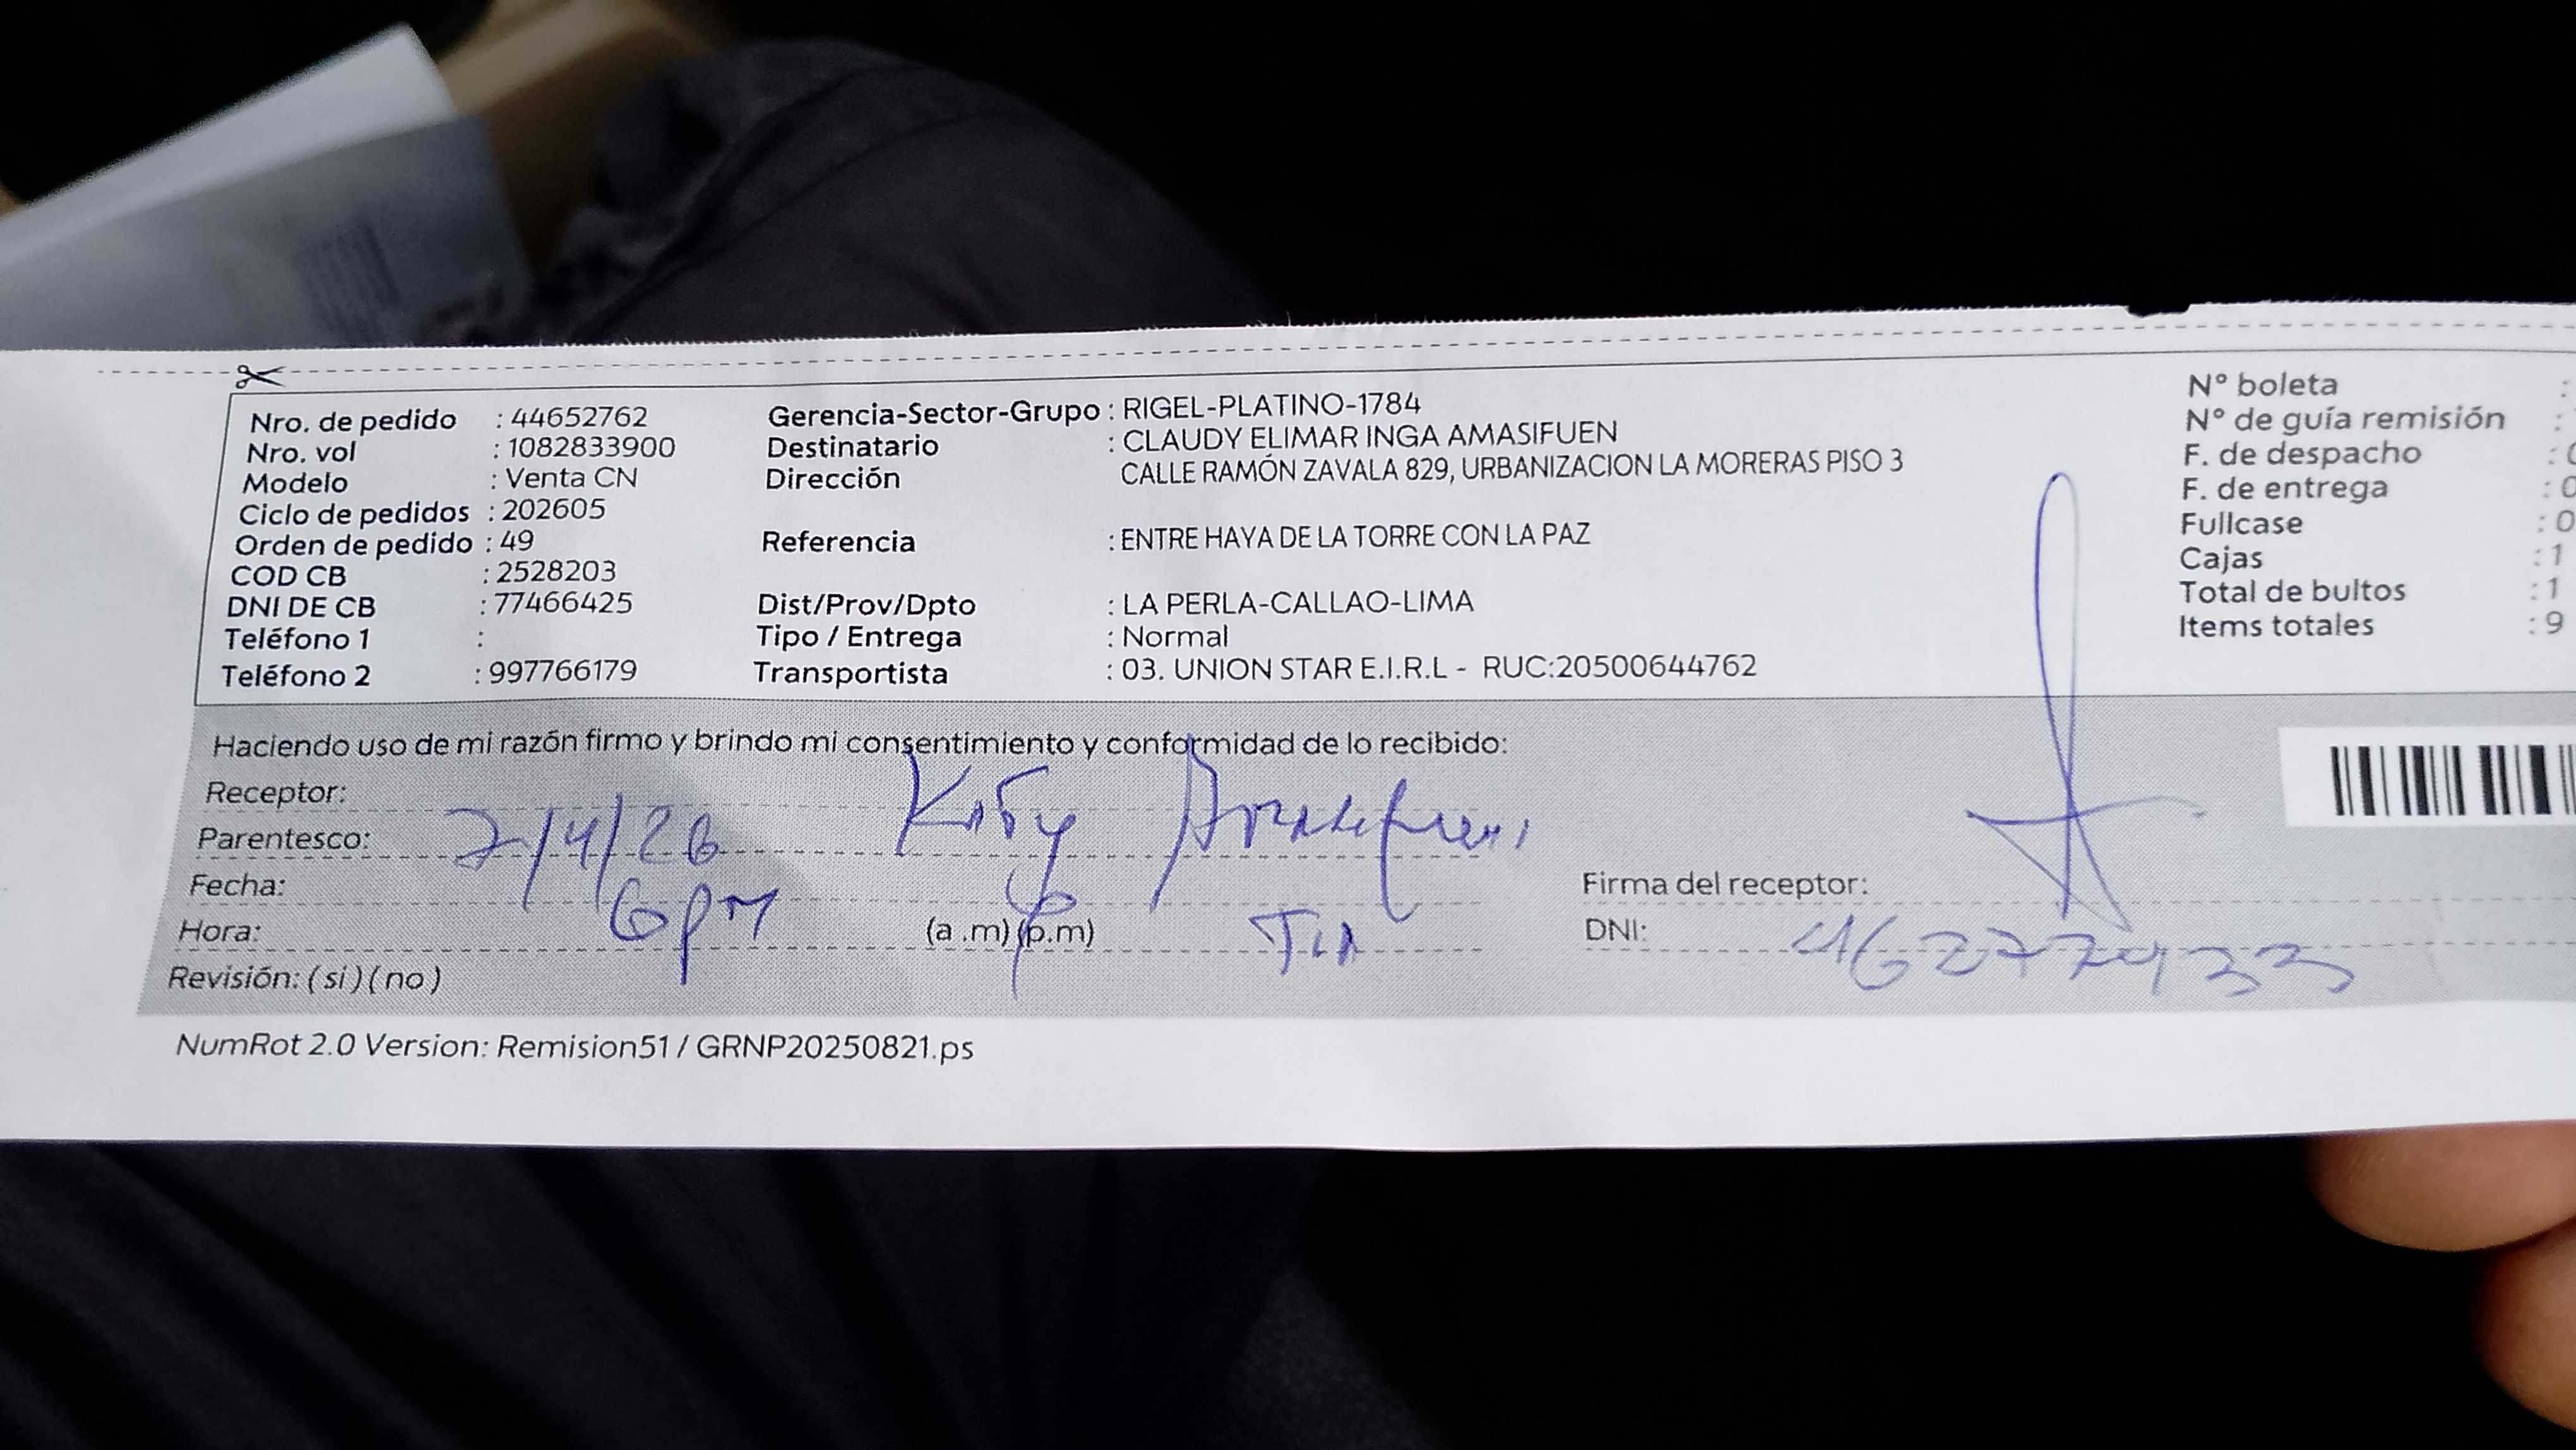 Nro. de pedido : 44652762
Nro. vol : 1082833900
Modelo : Venta CN
Ciclo de pedidos : 202605
Orden de pedido : 49
COD CB : 2528203
DNI DE CB : 77466425
Teléfono 1 :
Teléfono 2 : 997766179
Gerencia-Sector-Grupo : RIGEL-PLATINO-1784
Destinatario : CLAUDY ELIMAR INGA AMASIFUEN
Dirección CALLE RAMÓN ZAVALA 829, URBANIZACION LA MORERAS PISO 3
Referencia : ENTRE HAYA DE LA TORRE CON LA PAZ
Dist/Prov/Dpto : LA PERLA-CALLAO-LIMA
Tipo / Entrega : Normal
Transportista : 03. UNION STAR E.I.R.L - RUC:20500644762
N° boleta :
N° de guía remisión :
F. de despacho : 0
F. de entrega : 0
Fullcase : 0
Cajas : 1
Total de bultos : 1
Items totales : 9
Haciendo uso de mi razón firmo y brindo mi consentimiento y conformidad de lo recibido:
Receptor: Katy Amasifuen
Parentesco: 2/4/26
Fecha: 6pm
Hora: (a .m) (p.m) TIA
Revisión: ( si ) ( no )
Firma del receptor:
DNI:
NumRot 2.0 Version: Remision51 / GRNP20250821.ps